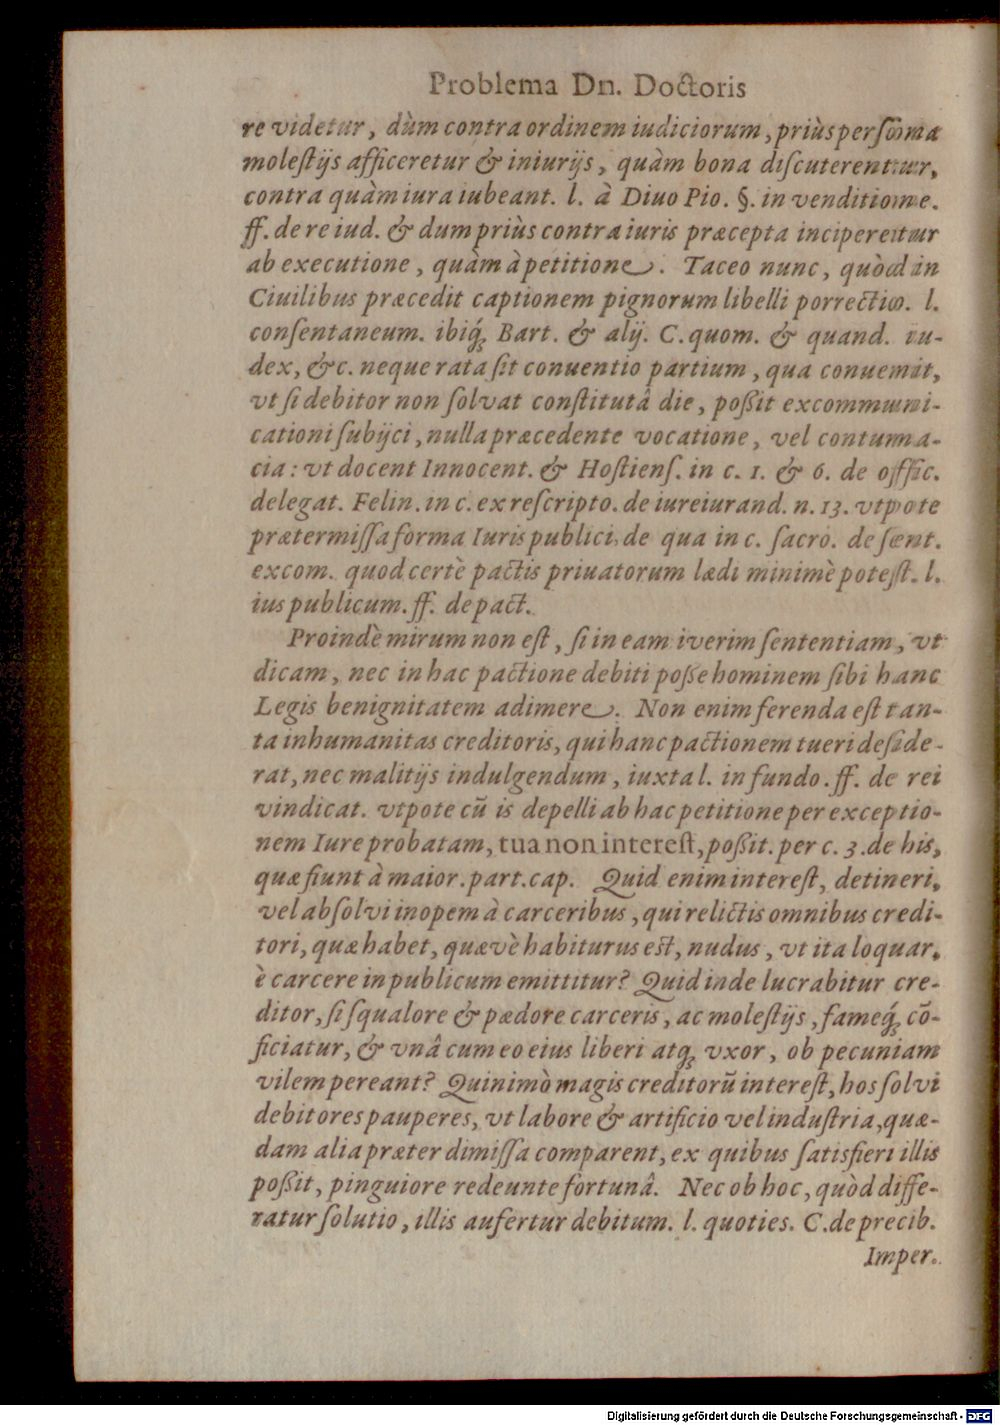 Problema Dn. Doctoris
re videtur, dùm contra ordinem iudiciorum, priùs persona
molestijs afficeretur & iniurijs, quàm bona discuterentur,
contra quàm iura iubeant. l. à Diuo Pio. §. in venditione.
ff. de re iud. & dum priùs contra iuris præcepta inciperetur
ab executione, quàm à petitione. Taceo nunc, quòd in
Ciuilibus præcedit captionem pignorum libelli porrectio. l.
consentaneum. ibiq́; Bart. & alij. C. quom. & quand. iu-
dex, &c. neque rata sit conuentio partium, qua conuenit,
vt si debitor non solvat constitutâ die, poßit excommuni-
cationi subijci, nulla præcedente vocatione, vel contuma-
cia: vt docent Innocent. & Hostiens. in c. 1. & 6. de offic.
delegat. Felin. in c. ex rescripto. de iureiurand. n. 13. vtpote
prætermissa forma Iuris publici, de qua in c. sacro. de sent.
excom. quod certè pactis priuatorum lædi minimè potest. l.
ius publicum. ff. de pact.
Proindè mirum non est, si in eam iverim sententiam, vt
dicam, nec in hac pactione debiti posse hominem sibi hanc
Legis benignitatem adimere. Non enim ferenda est tan-
ta inhumanitas creditoris, qui hanc pactionem tueri deside-
rat, nec malitijs indulgendum, iuxta l. in fundo. ff. de rei
vindicat. vtpote cũ is depelli ab hac petitione per exceptio-
nem Iure probatam, tua non interest, poßit. per c. 3. de his,
quæ fiunt à maior. part. cap. Quid enim interest, detineri,
vel absolvi inopem à carceribus, qui relictis omnibus credi-
tori, quæ habet, quævè habiturus est, nudus, vt ita loquar,
è carcere in publicum emittitur? Quid inde lucrabitur cre-
ditor, si squalore & pædore carceris, ac molestijs, fameq́; cõ-
ficiatur, & vnâ cum eo eius liberi atq; vxor, ob pecuniam
vilem pereant? Quinimò magis creditorũ interest, hos solvi
debitores pauperes, vt labore & artificio vel industria, quæ-
dam alia præter dimissa comparent, ex quibus satisfieri illis
poßit, pinguiore redeunte fortunâ. Nec ob hoc, quòd diffe-
ratur solutio, illis aufertur debitum. l. quoties. C. de precib.
Imper.
Digitalisierung gefördert durch die Deutsche Forschungsgemeinschaft - DFG